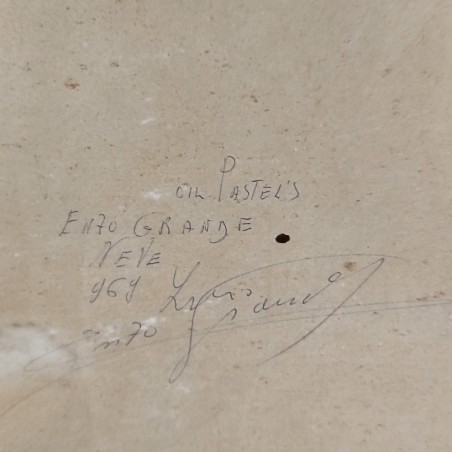 OIL PASTEL'S
ENZO GRANDE
NEVE
969
Enzo